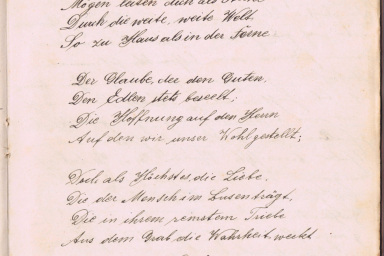 Mögen leiten dich als Sterne
Durch die weite, weite Welt.
So zu Haus als in der Ferne

Der Glaube, der den Guten,
Den Edlen stets beseelt;
Die Hoffnung auf den Herrn
Auf den wir unser Wohl gestellt;

Doch als Höchstes, die Liebe,
Die der Mensch im Busen trägt,
Die in ihrem reinstem Triebe
Aus dem Grab die Wahrheit weckt